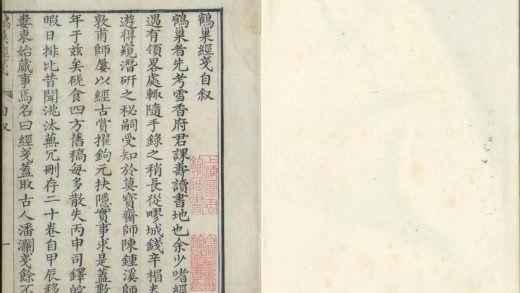 鶴巢經箋自叙
鶴巢者先考雪香府君課壽讀書地也余少嗜經
遇有領畧處輙隨手錄之稍長從嘐城錢辛楣夫
遊得窺潛硏之秘嗣受知於莫寶齋師陳鍾溪師
敦甫師屢以經古賞擢鉤元抉隱實事求是蓋數
年于兹矣硯食四方舊稿每多散失丙申司鐸皖
暇日排比昔聞洮汰蕪冗刪存二十卷自甲辰移
婁東始蕆事焉名曰經箋蓋取古人潘瀾箋餘不
鶴巢經箋 自叙 一